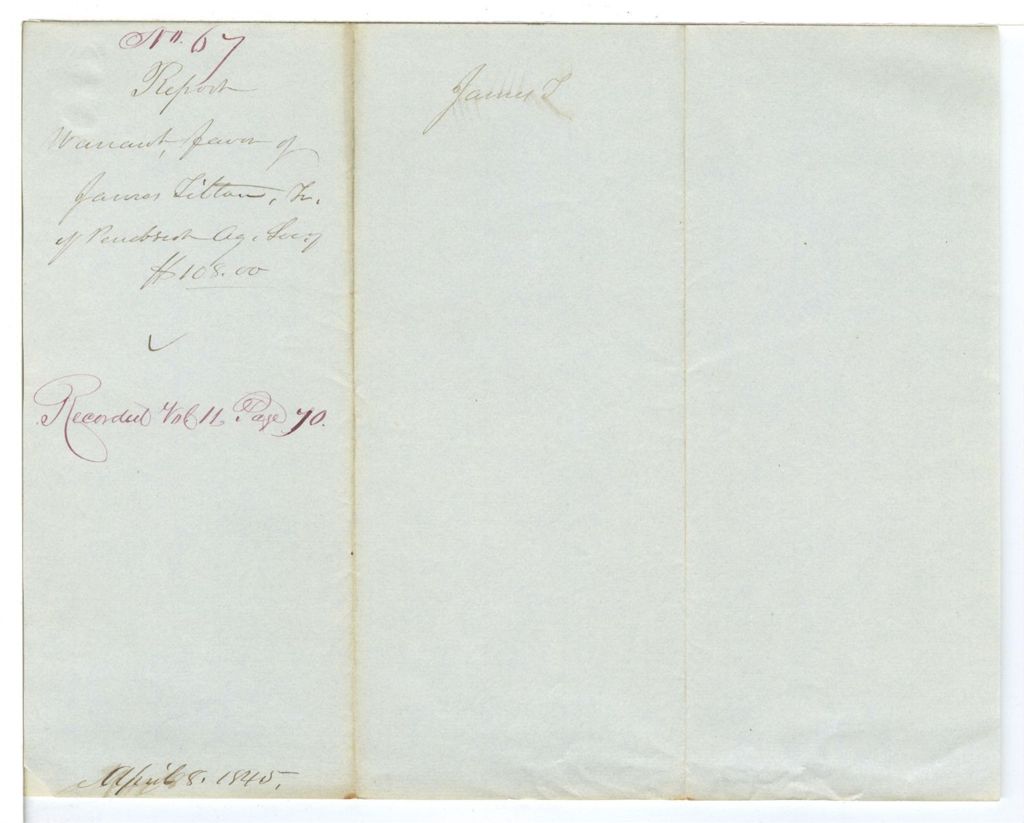 No. 67
Report
Warrant, favor of
James Titton, Tr.
of Penobscot Ag. Socy
$108.00
Recorded Vol 11 Page 70.
April 8. 1845.
James T